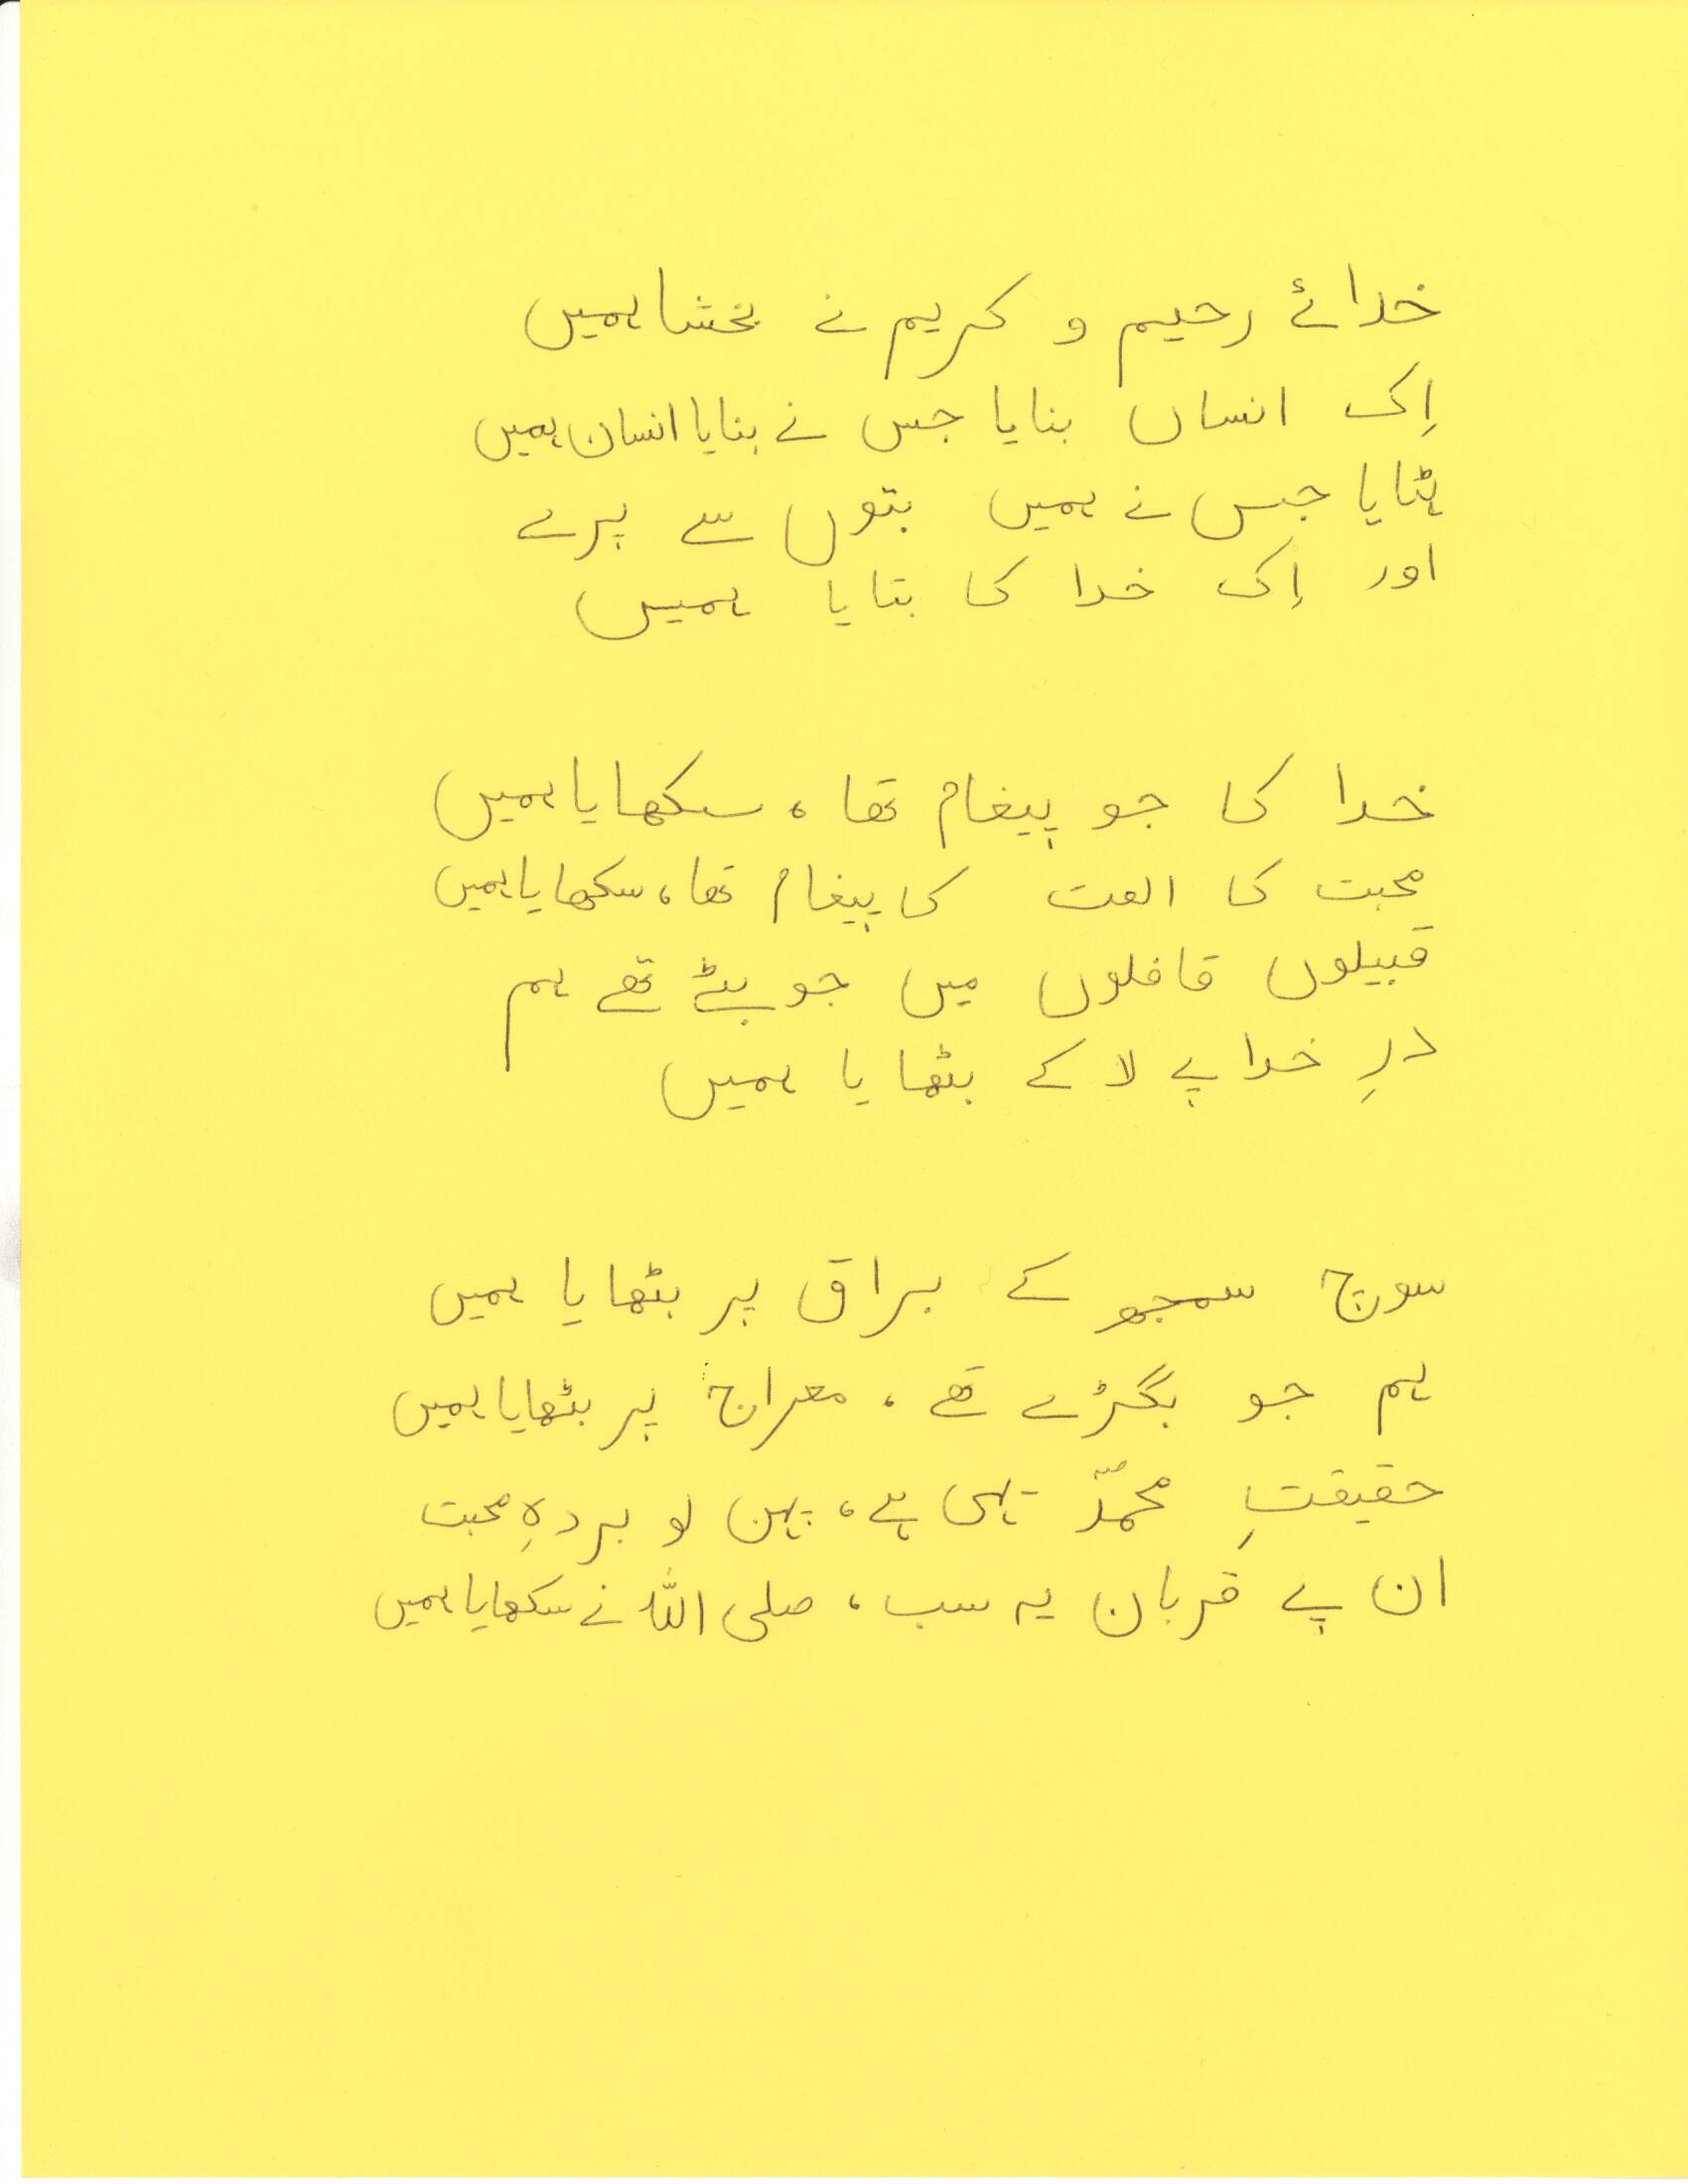 خدائے رحیم و کریم نے بخشا ہمیں
اِک انساں بنایا جس نے بنایا انسان ہمیں
ہٹایا جس نے ہمیں بتوں سے پرے
اور اِک خدا کا بتایا ہمیں
خدا کا جو پیغام تھا، سکھایا ہمیں
محبت کا الفت کا پیغام تھا، سکھایا ہمیں
قبیلوں قافلوں میں جو بٹے تھے ہم
درِ خدا پے لا کے بٹھایا ہمیں
سوچ سمجھ کے براق پر بٹھایا ہمیں
ہم جو بگڑے تھے، معراج پر بٹھایا ہمیں
حقیقتِ محمدؐ یہی ہے، پہن لو بردہِ محبت
ان پے قربان یہ سب، صلی اللہ نے سکھایا ہمیں